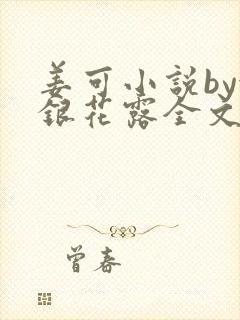 姜可小説by
銀花露全文
曾春